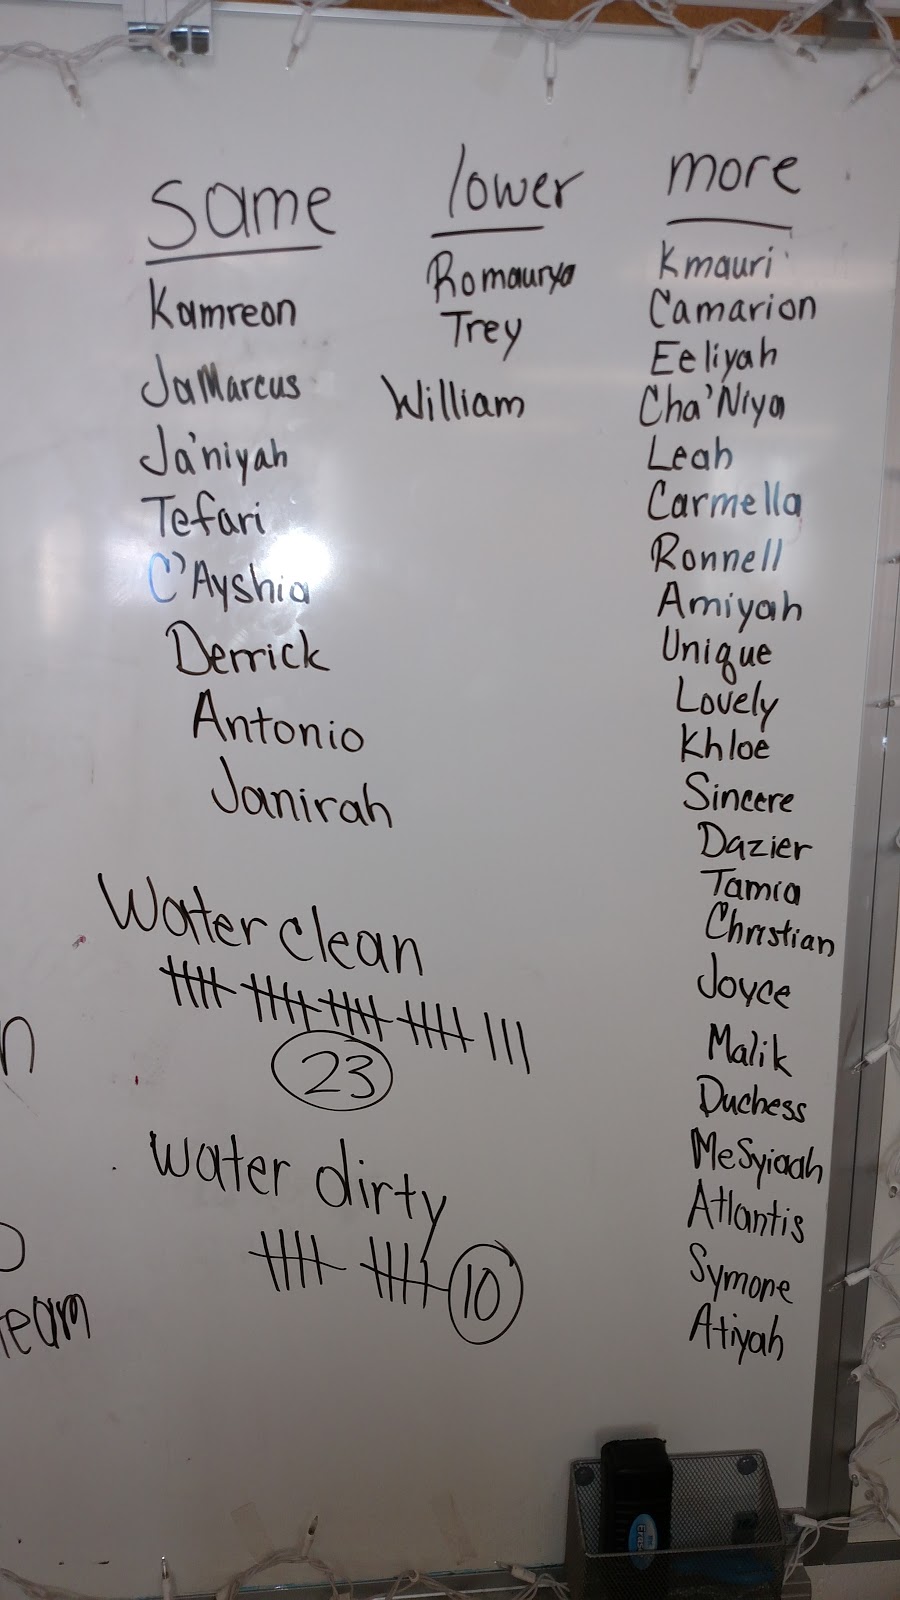 same
Kamreon
JaMarcus
Ja'niyah
Tefari
C'Ayshia
Derrick
Antonio
Janirah
lower
Romaurya
Trey
William
more
Kmauri
Camarion
Eeliyah
Cha'Niya
Leah
Carmella
Ronnell
Amiyah
Unique
Lovely
Khloe
Sincere
Dazier
Tamia
Christian
Joyce
Malik
Duchess
MeSyiaah
Atlantis
Symone
Atiyah
Water clean
23
water dirty
10
eam